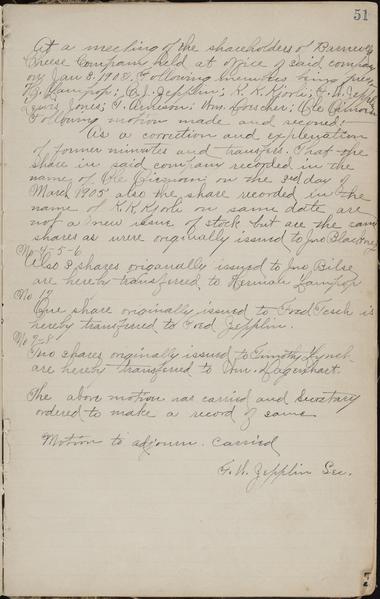 51
At a meeting of the shareholders of
Cheese Company held at office of said company
on Jan 3. 1908. Following members being
Lewis Jones; Wm
Following motion made and second:
As a correction and explanation
of former minutes and transfers. That the
share in said company recorded in the
name of Ole on the 3rd day of
March 1905 also the share recorded in the
name of K.K. on same date are
not a new issue of stock but are the same
shares as were originally issued to Jno
No 4-5-6
Also 3 shares originally issued to Jno
are hereby transferred to Herman
No 17
One share originally issued to Fred Tesch is
hereby transferred to Fred Zepplin.
No 7-8
Two shares originally issued to Timothy Lynch
are hereby transferred to Wm.
The above motion was carried and Secretary
ordered to make a record of same
Motion to adjourn. Carried
F. W. Zepplin Sec.